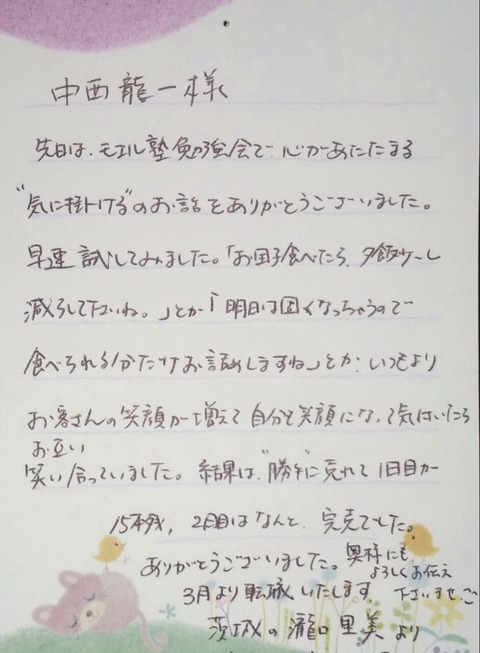 中西龍一様
先日は、モエル塾勉強会で、心があたたまる
"気に掛ける"のお話をありがとうございました。
早速試してみました。「お団子食べたら、夕飯少し
減らして下さいね。」とか「明日は固くなっちゃうので
食べられる分だけお詰めしますね」とか、いつもより
お客さんの笑顔が増えて自分も笑顔になって気付いたら
お互い
笑い合っていました。結果は、"勝手に"売れて1日目が
15本残、2日目はなんと、完売でした。
ありがとうございました。奥様にも
よろしくお伝え
下さいませ。
3月より転職いたします
茨城の瀧口里美より